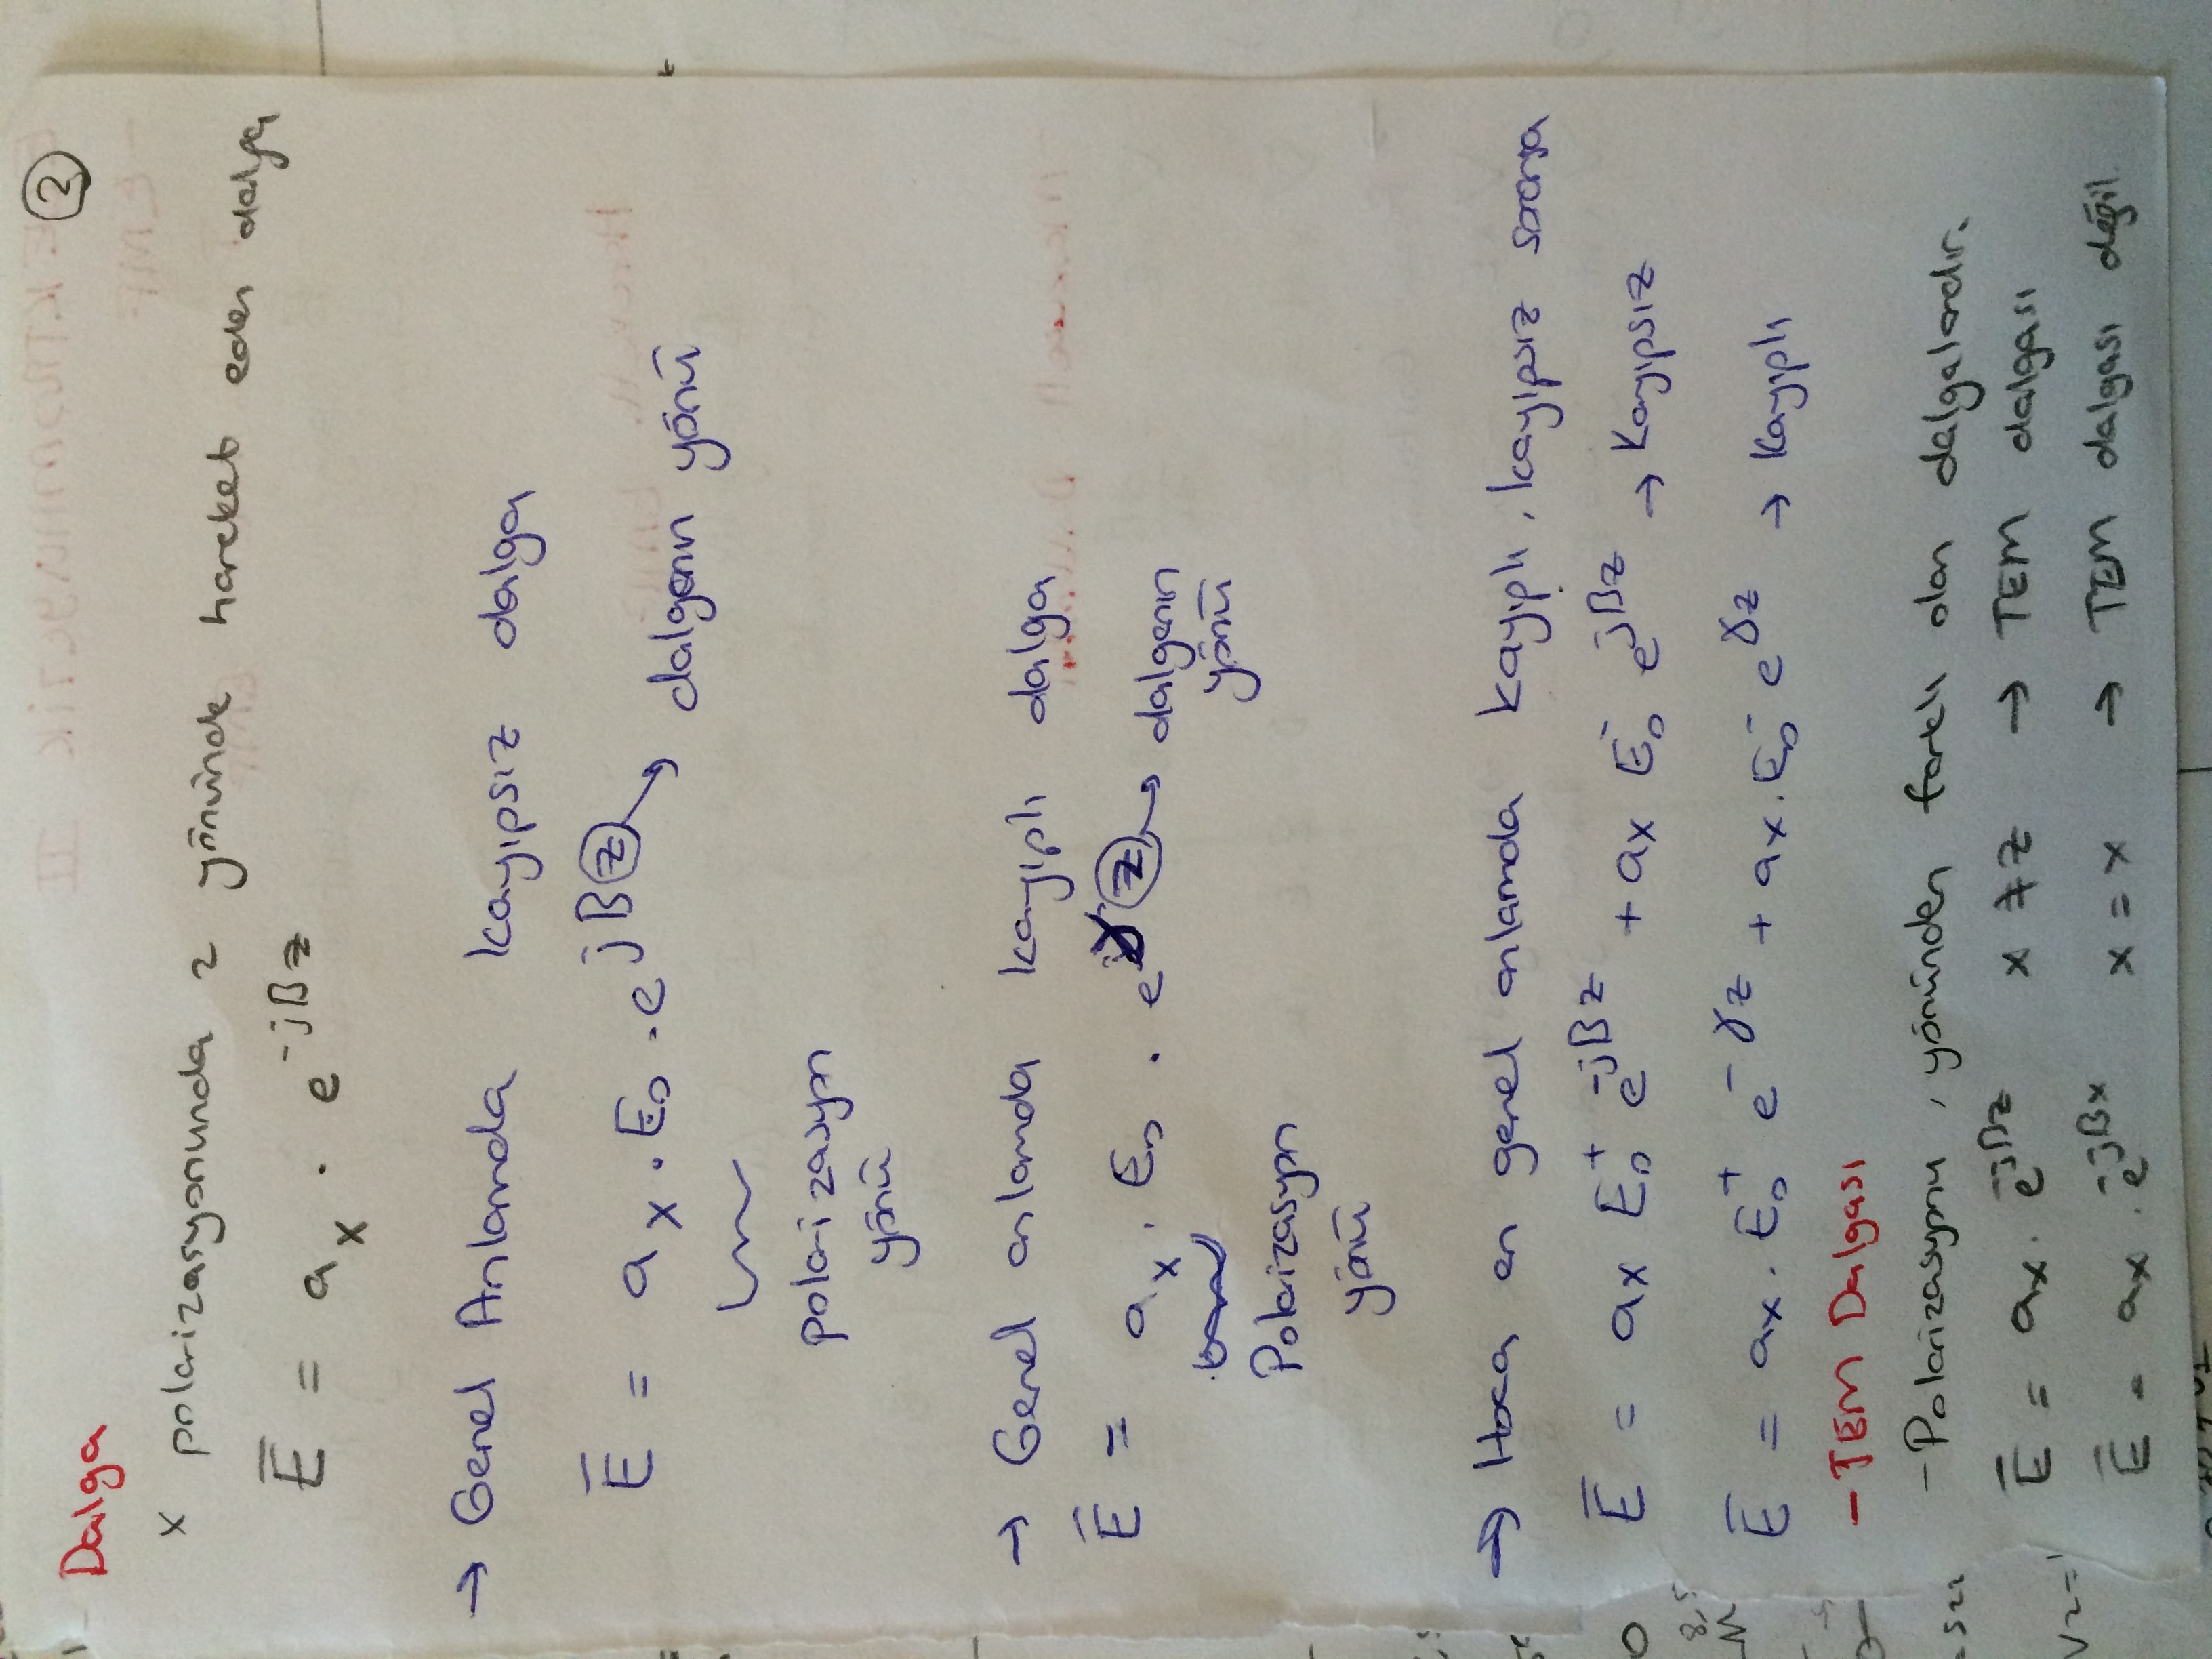 2
Dalga
x polarizasyonunda z yönünde hareket eden dalga
E̅ = aₓ · e^-jβz
→ Genel Anlamda kayıpsız dalga
E̅ = aₓ · E₀ · e^jβz → dalganın yönü
polarizasyon
yönü
→ Genel anlamda kayıplı dalga
E̅ = aₓ · E₀ · e^γz → dalganın
yönü
Polarizasyon
yönü
→ Hoca en genel anlamda kayıplı, kayıpsız sorarsa
E̅ = aₓ E₀⁺ e^-jβz + aₓ E₀⁻ e^jβz → Kayıpsız
E̅ = aₓ · E₀⁺ e^-γz + aₓ · E₀⁻ e^γz → Kayıplı
- TEM Dalgası
- Polarizasyonu, yönünden farklı olan dalgalardır.
E̅ = aₓ · e^-jβz x ≠ z → TEM dalgası
E̅ = aₓ · e^-jβx x = x → TEM dalgası değil